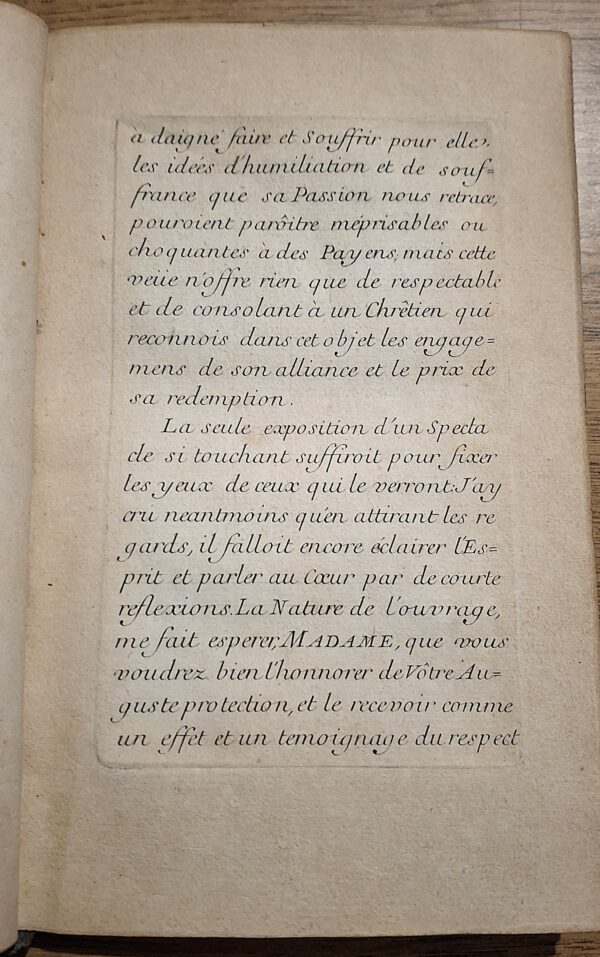 a daigné faire et Souffrir pour elle,
les ideés d'humiliation et de souf=
france que sa Passion nous retrace,
pouroient parôitre méprisables ou
choquantes à des Payens, mais cette
veüe n'offre rien que de respectable
et de consolant à un Chrêtien qui
reconnois dans cet objet les engage=
mens de son alliance et le prix de
sa redemption.
La seule exposition d'un Specta
cle si touchant suffiroit pour fixer
les yeux de ceux qui le verront: J'ay
cru neantmoins qu'en attirant les re
gards, il falloit encore éclairer l'Es=
prit et parler au Cœur par de courte
reflexions. La Nature de l'ouvrage,
me fait esperer, MADAME, que vous
voudrez bien l'honnorer de Vôtre Au=
guste protection, et le recevoir comme
un effet et un temoignage du respect